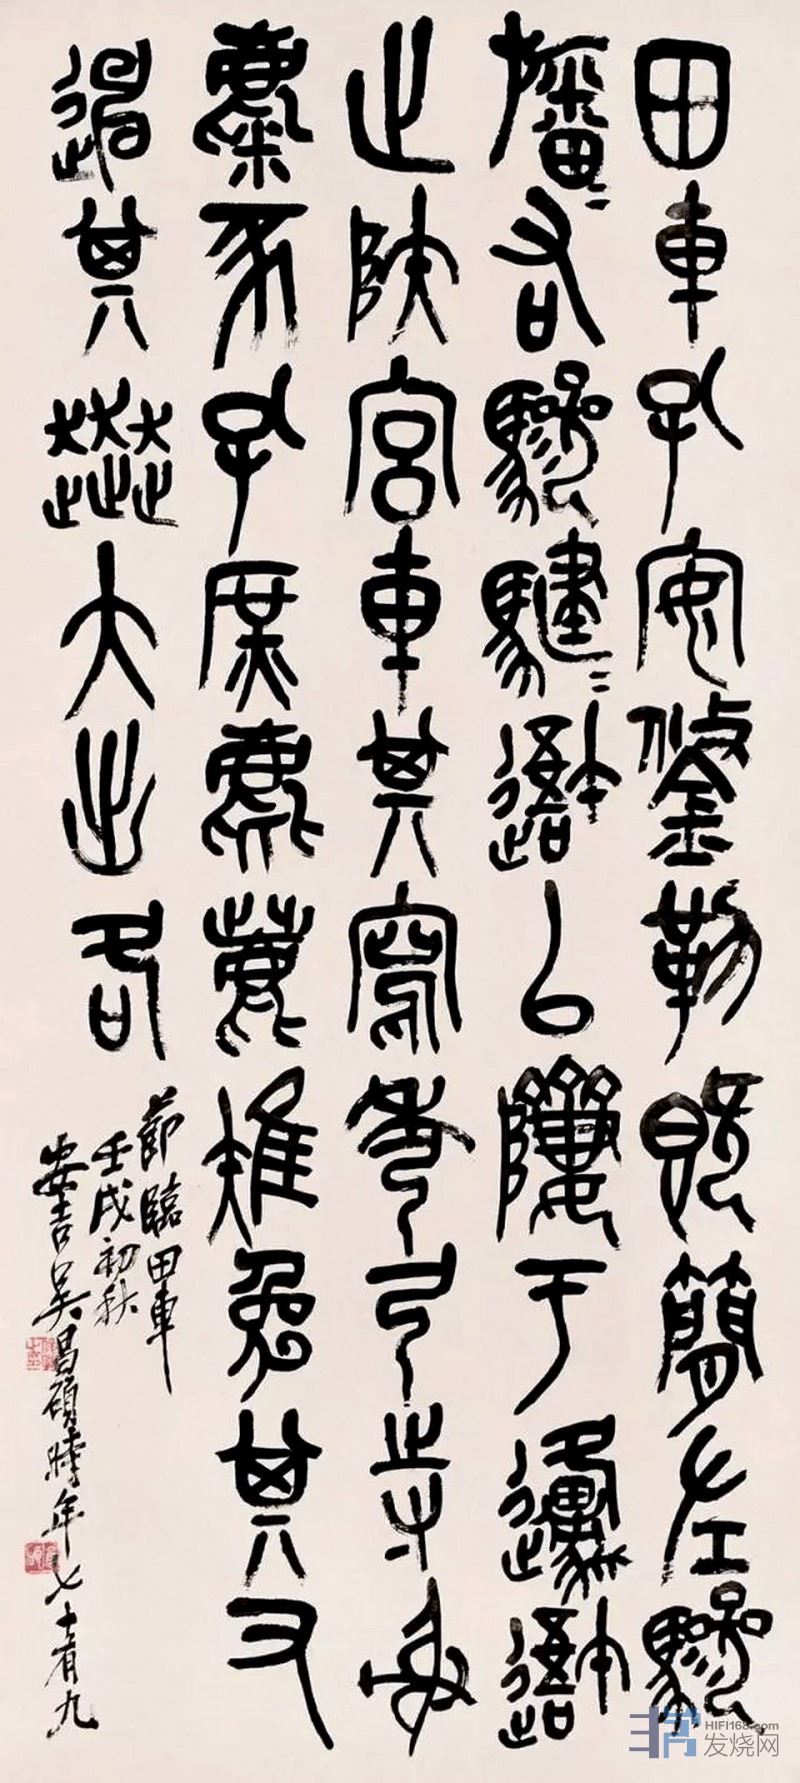 田車孔安鋚勒既簡左驂
旛=右驂騝=以隮于邍
止陝宮車其寫秀弓寺射
麋豕孔庶麀鹿雉兔其又
其大出各
節臨田車
壬戌初秋
安吉吳昌碩時年七十有九
HIFI168.com
发烧网